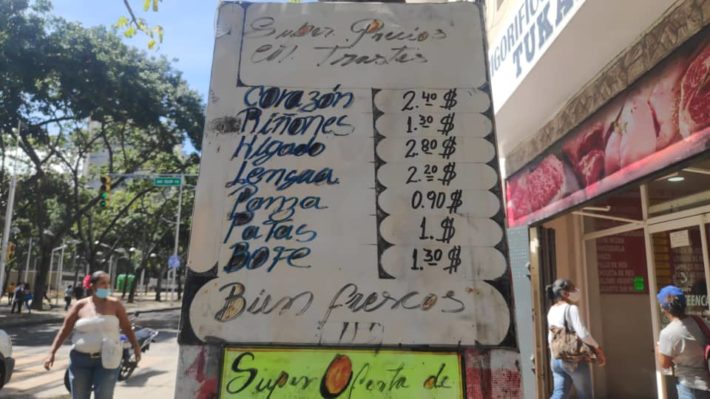 Super Precios
Corazón 2.40 $
Riñones 1.30 $
Hígado 2.80 $
Lengua 2.20 $
Panza 0.90 $
Patas 1. $
BOFE 1.30 $
Bien frescos
Super Oferta de
TUKA